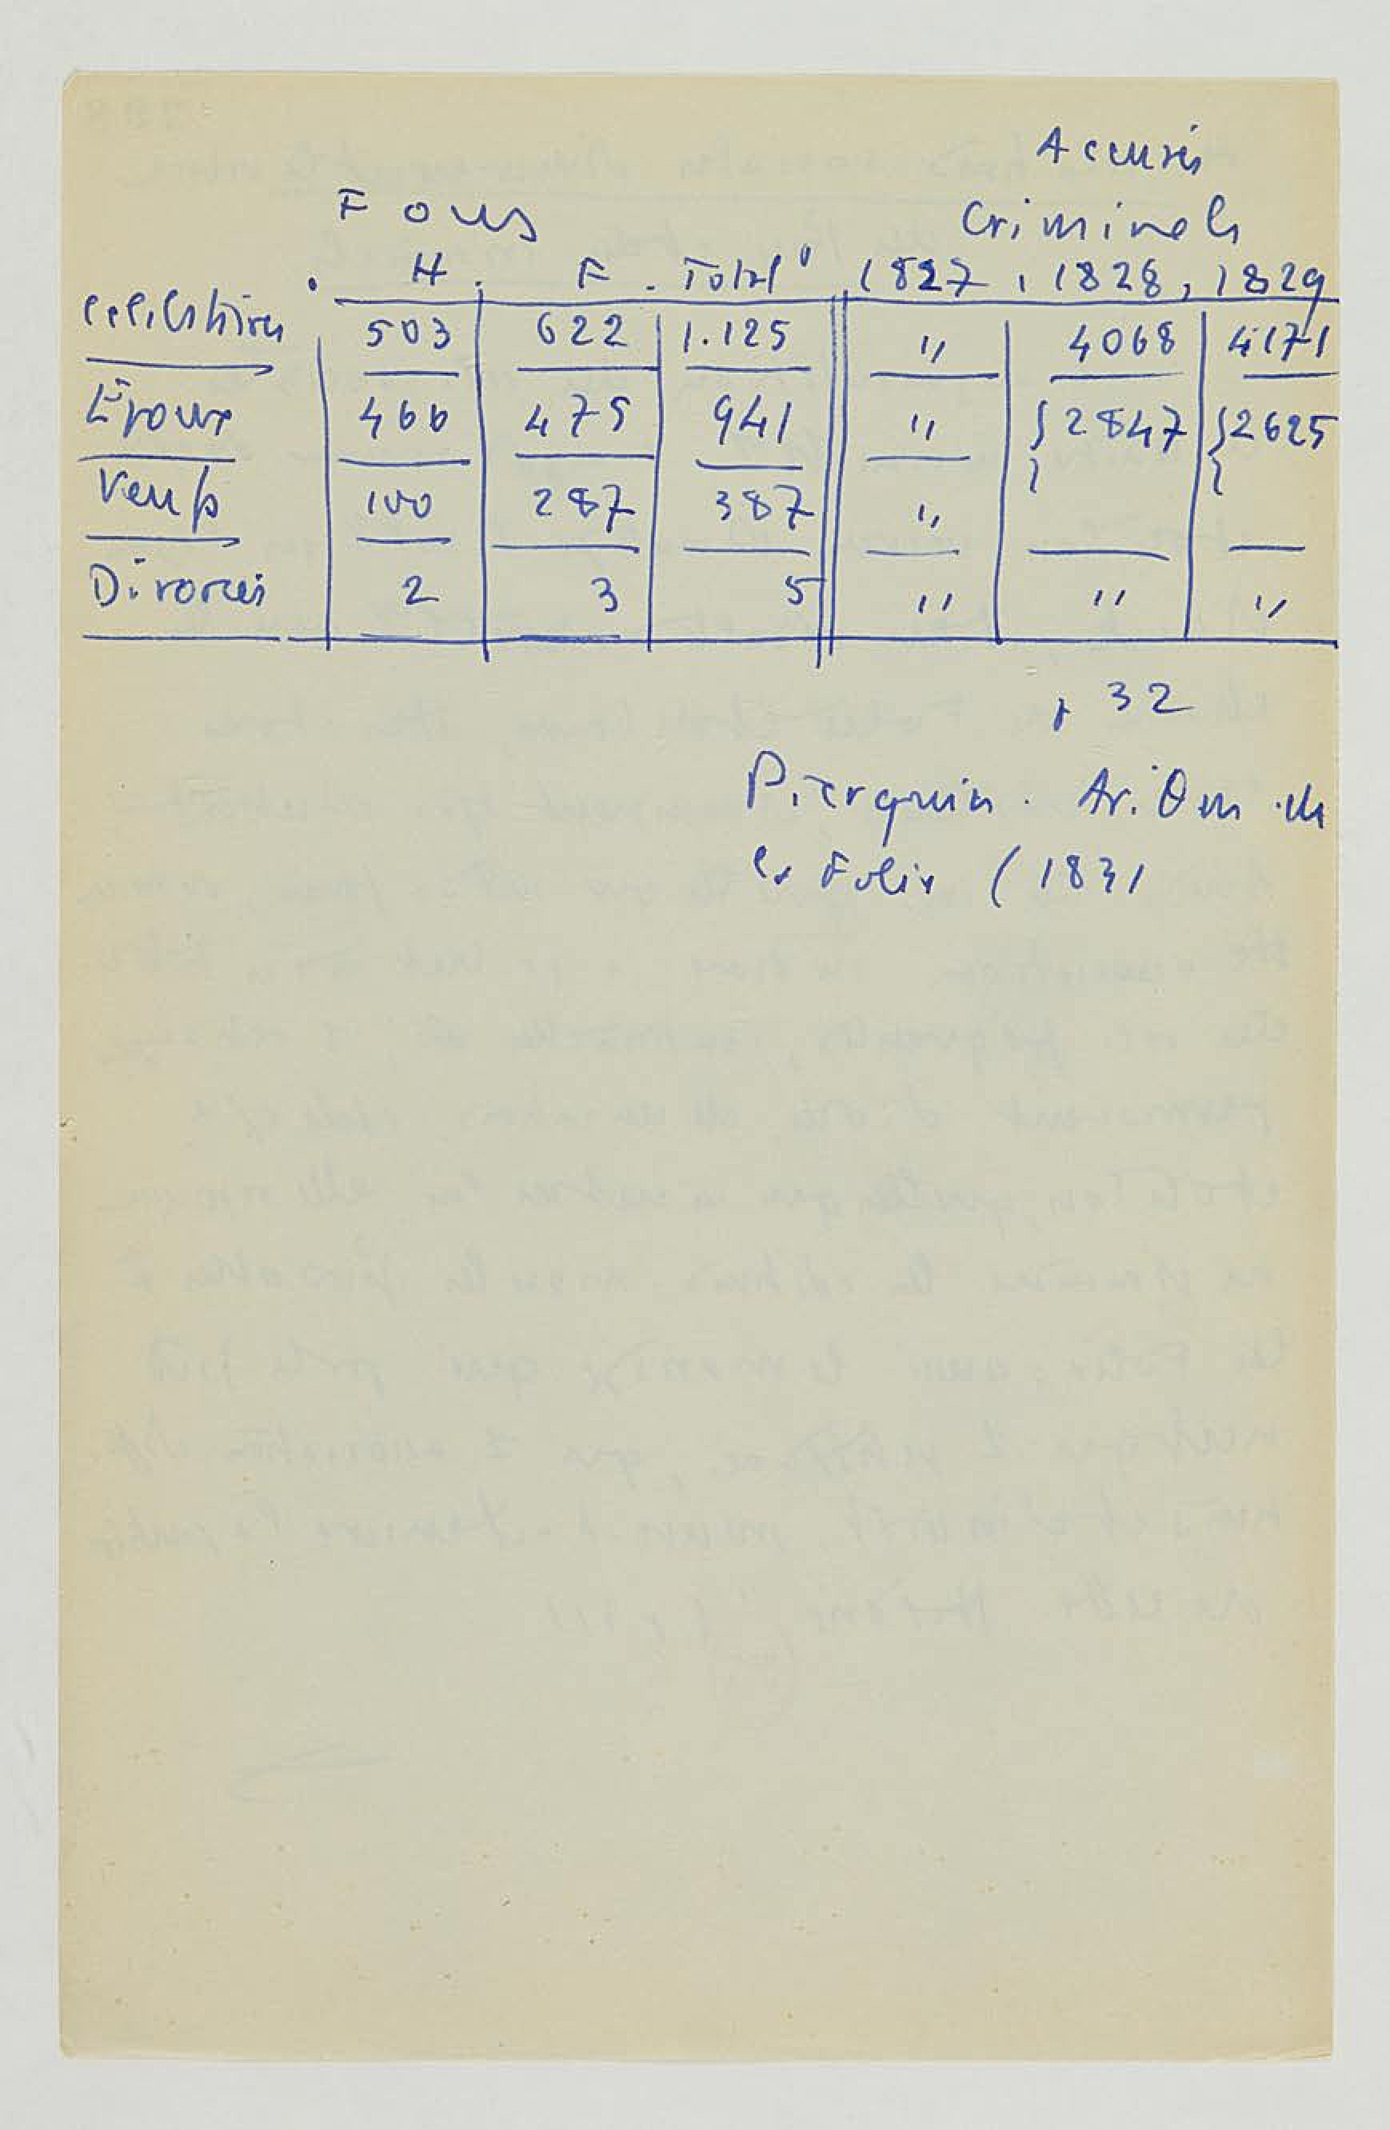 Accusés
Fous Criminels
H. F. Total 1827, 1828, 1829
Célibataires 503 622 1.125 " 4068 4171
Époux 466 475 941 " { 2847 { 2625
Veufs 100 287 387 "
Divorcés 2 3 5 " " "
p 32
Pierquin. Arithm de
la Folie (1831